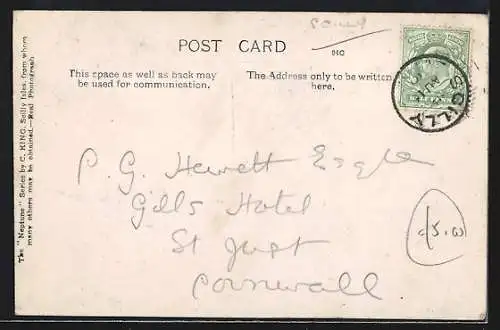 SCILLY
POST CARD
This space as well as back may
be used for communication.
The Address only to be written
here.
The "Neptune" Series by C. KING, Scilly Isles, from whom
many others may be obtained.—Real Photograph
SCILLY
P. G. Hewett Esqre
Gills Hotel
St Just
Cornwall